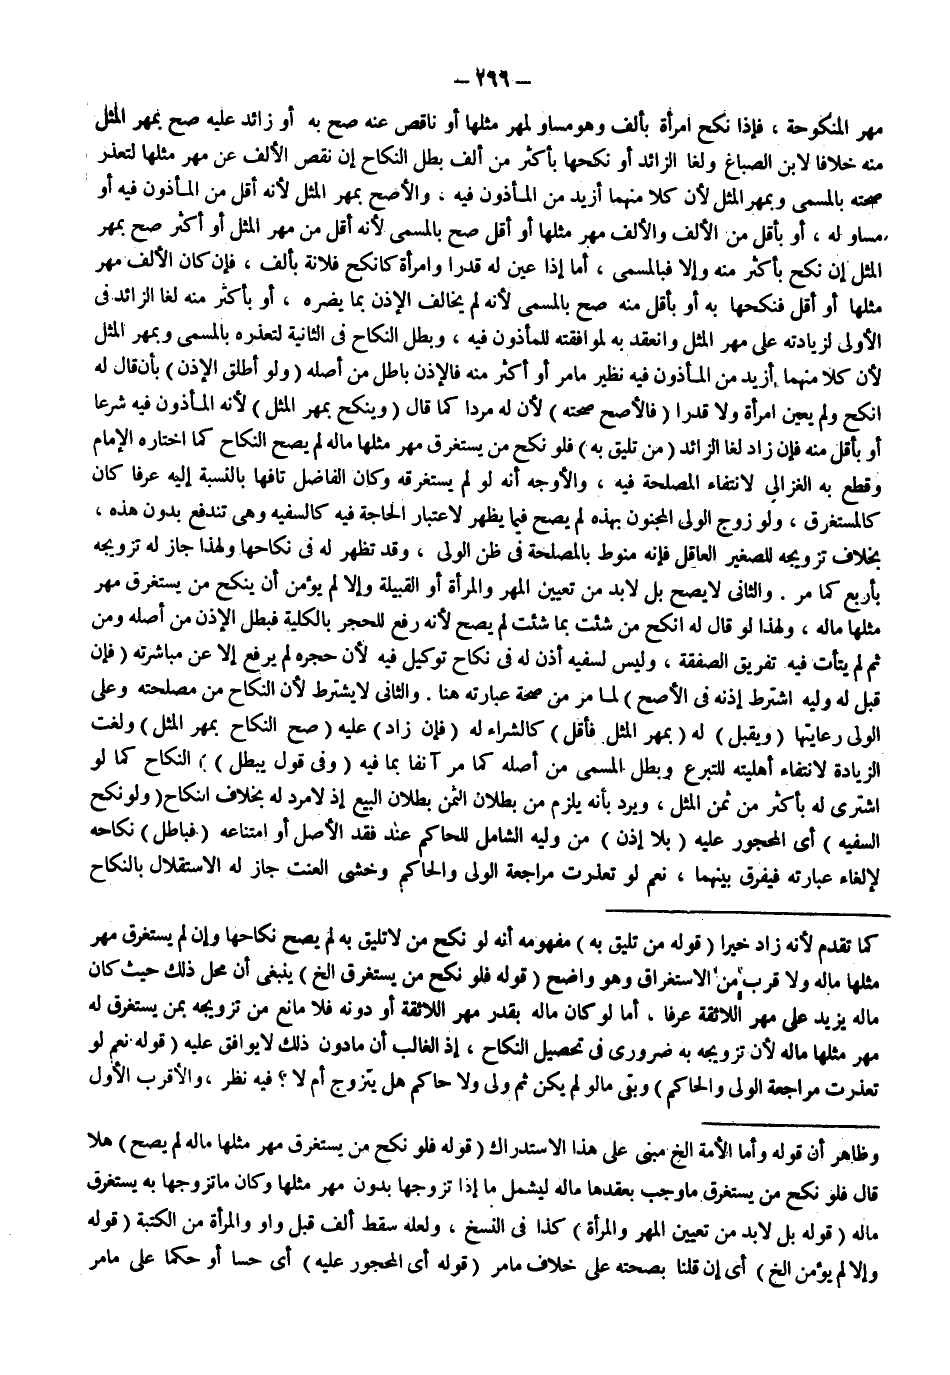 – ٢٦٦ –
مهر المنكوحة ، فإذا نكح امرأة بألف وهو مساو لمهر مثلها أو ناقص عنه صح به أو زائد عليه صح بمهر المثل
منه خلافا لابن الصباغ ولغا الزائد أو نكحها بأكثر من ألف بطل النكاح إن نقص الألف عن مهر مثلها لتعذر
صحته بالمسمى وبمهر المثل لأن كلا منهما أزيد من المأذون فيه ، والأصح بمهر المثل لأنه أقل من المأذون فيه أو
مساو له ، أو بأقل من الألف والألف مهر مثلها أو أقل صح بالمسمى لأنه أقل من مهر المثل أو أكثر صح بمهر
المثل إن نكح بأكثر منه وإلا فبالمسمى ، أما إذا عين له قدرا وامرأة كانكح فلانة بألف ، فإن كان الألف مهر
مثلها أو أقل فنكحها به أو بأقل منه صح بالمسمى لأنه لم يخالف الإذن بما يضره ، أو بأكثر منه لغا الزائد فى
الأولى لزيادته على مهر المثل وانعقد به لموافقته للمأذون فيه ، وبطل النكاح فى الثانية لتعذره بالمسمى وبمهر المثل
لأن كلا منهما أزيد من المأذون فيه نظير مامر أو أكثر منه فالإذن باطل من أصله ( ولو أطلق الإذن ) بأن قال له
انكح ولم يعين امرأة ولا قدرا ( فالأصح صحته ) لأن له مردا كما قال ( وينكح بمهر المثل ) لأنه المأذون فيه شرعا
أو بأقل منه فإن زاد لغا الزائد ( من تليق به ) فلو نكح من يستغرق مهر مثلها ماله لم يصح النكاح كما اختاره الإمام
وقطع به الغزالي لانتفاء المصلحة فيه ، والأوجه أنه لو لم يستغرقه وكان الفاضل تافها بالنسبة إليه عرفا كان
كالمستغرق ، ولو زوج الولى المجنون بهذه لم يصح فيما يظهر لاعتبار الحاجة فيه كالسفيه وهى تندفع بدون هذه ،
بخلاف تزويجه للصغير العاقل فإنه منوط بالمصلحة فى ظن الولى ، وقد تظهر له فى نكاحها ولهذا جاز له تزويجه
بأربع كما مر . والثانى لايصح بل لابد من تعيين المهر والمرأة أو القبيلة وإلا لم يؤمن أن ينكح من يستغرق مهر
مثلها ماله ، ولهذا لو قال له انكح من شئت بما شئت لم يصح لأنه رفع للحجر بالكلية فبطل الإذن من أصله ومن
ثم لم يتأت فيه تفريق الصفقة ، وليس لسفيه أذن له فى نكاح توكيل فيه لأن حجره لم يرفع إلا عن مباشرته ( فإن
قبل له وليه اشترط إذنه فى الأصح ) لما مر من صحة عبارته هنا . والثانى لايشترط لأن النكاح من مصلحته وعلى
الولى رعايتها ( ويقبل ) له ( بمهر المثل فأقل ) كالشراء له ( فإن زاد ) عليه ( صح النكاح بمهر المثل ) ولغت
الزيادة لانتفاء أهليته للتبرع وبطل المسمى من أصله كما مر آنفا بما فيه ( وفى قول يبطل ) النكاح كما لو
اشترى له بأكثر من ثمن المثل ، ويرد بأنه يلزم من بطلان الثمن بطلان البيع إذ لامرد له بخلاف النكاح ( ولو نكح
السفيه ) أى المحجور عليه ( بلا إذن ) من وليه الشامل للحاكم عند فقد الأصل أو امتناعه ( فباطل ) نكاحه
لإلغاء عبارته فيفرق بينهما ، نعم لو تعذرت مراجعة الولى والحاكم وخشى العنت جاز له الاستقلال بالنكاح
كما تقدم لأنه زاد خيرا ( قوله من تليق به ) مفهومه أنه لو نكح من لاتليق به لم يصح نكاحها وإن لم يستغرق مهر
مثلها ماله ولا قرب من الاستغراق وهو واضح ( قوله فلو نكح من يستغرق الخ ) ينبغى أن محل ذلك حيث كان
ماله يزيد على مهر اللائقة عرفا ، أما لو كان ماله بقدر مهر اللائقة أو دونه فلا مانع من تزويجه بمن يستغرق له
مهر مثلها ماله لأن تزويجه به ضرورى فى تحصيل النكاح ، إذ الغالب أن مادون ذلك لايوافق عليه ( قوله نعم لو
تعذرت مراجعة الولى والحاكم ) وبقى مالو لم يكن ثم ولى ولا حاكم هل يتزوج أم لا ؟ فيه نظر ، والأقرب الأول
وظاهر أن قوله وأما الأمة الخ مبنى على هذا الاستدراك ( قوله فلو نكح من يستغرق مهر مثلها ماله لم يصح ) هلا
قال فلو نكح من يستغرق ماوجب بعقدها ماله ليشمل ما إذا تزوجها بدون مهر مثلها وكان ماتزوجها به يستغرق
ماله ( قوله بل لابد من تعيين المهر والمرأة ) كذا فى النسخ ، ولعله سقط ألف قبل واو والمرأة من الكتبة ( قوله
وإلا لم يؤمن الخ ) أى إن قلنا بصحته على خلاف مامر ( قوله أى المحجور عليه ) أى حسا أو حكما على مامر